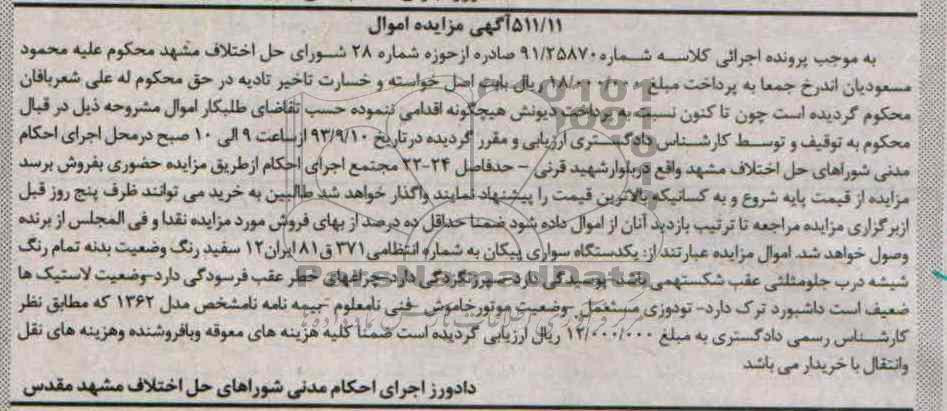 ۵۱۱/۱۱آگهی مزایده اموال
به موجب پرونده اجرائی کلاسه شماره۹۱/۲۵۸۷۰ صادره ازحوزه شماره ۲۸ شورای حل اختلاف مشهد محکوم علیه محمود
مسعودیان اندرخ جمعا به پرداخت مبلغ ۱۸/۰۰۰/۰۰۰ ریال بابت اصل خواسته و خسارت تاخیر تادیه در حق محکوم له علی شعربافان
محکوم گردیده است چون تا کنون نسبت به پرداخت دیونش هیچگونه اقدامی ننموده حسب تقاضای طلبکار اموال مشروحه ذیل در قبال
محکوم به توقیف و توسط کارشناس دادگستری ارزیابی و مقرر گردیده درتاریخ ۹۳/۹/۱۰ ازساعت ۹ الی ۱۰ صبح درمحل اجرای احکام
مدنی شوراهای حل اختلاف مشهد واقع دربلوارشهید قرنی – حدفاصل ۲۴-۲۲ مجتمع اجرای احکام ازطریق مزایده حضوری بفروش برسد
مزایده از قیمت پایه شروع و به کسانیکه بالاترین قیمت را پیشنهاد نمایند واگذار خواهد شد طالبین به خرید می توانند ظرف پنج روز قبل
ازبرگزاری مزایده مراجعه تا ترتیب بازدید آنان از اموال داده شود ضمنا حداقل ده درصد از بهای فروش مورد مزایده نقدا و فی المجلس از برنده
وصول خواهد شد. اموال مزایده عبارتند از: یکدستگاه سواری پیکان به شماره انتظامی۳۷۱ ق۸۱ ایران۱۲ سفید رنگ وضعیت بدنه تمام رنگ
شیشه درب جلومثلثی عقب شکستهمی باشد- پوسیدگی دارد- چراغهای خطر عقب فرسودگی دارد-وضعیت لاستیک ها
ضعیف است داشبورد ترک دارد- تودوزی مستعمل -وضعیت موتورخاموش -فنی نامعلوم -بیمه نامه نامشخص مدل ۱۳۶۲ که مطابق نظر
کارشناس رسمی دادگستری به مبلغ ۱۲/۰۰۰/۰۰۰ ریال ارزیابی گردیده است ضمنا کلیه هزینه های معوقه وبافروشنده وهزینه های نقل
وانتقال با خریدار می باشد
دادورز اجرای احکام مدنی شوراهای حل اختلاف مشهد مقدس
ParsNamadData